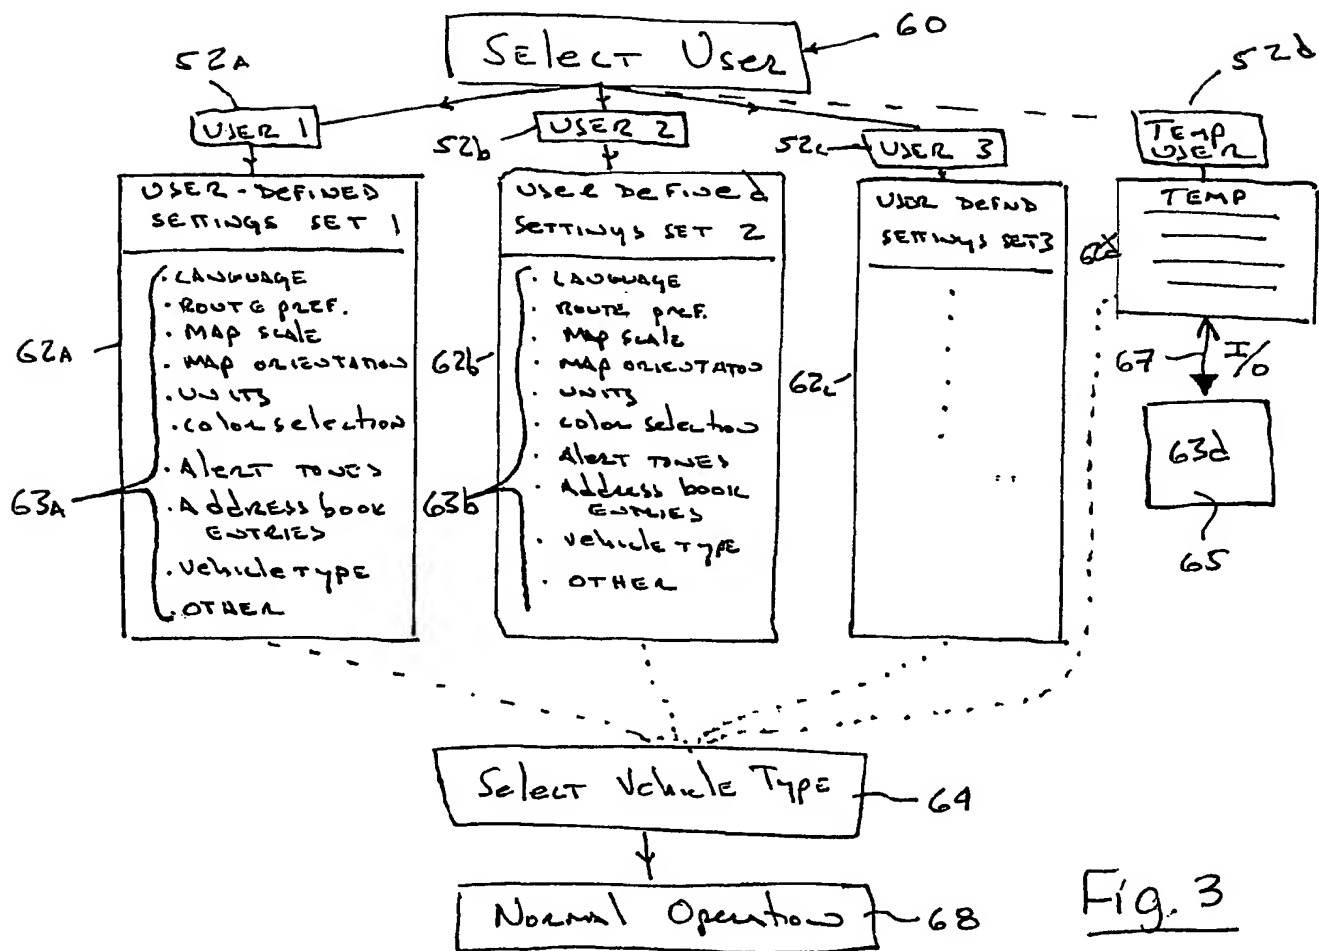 Select User
60
52A
52d
USER 1
52b
USER 2
52c
USER 3
TEMP
USER
USER-DEFINED
SETTINGS SET 1
LANGUAGE
ROUTE PREF.
MAP SCALE
MAP ORIENTATION
UNITS
COLOR SELECTION
ALERT TONES
ADDRESS BOOK
ENTRIES
VEHICLE TYPE
OTHER
62A
63A
USER DEFINED
SETTINGS SET 2
LANGUAGE
ROUTE PREF.
MAP SCALE
MAP ORIENTATON
UNITS
COLOR SELECTION
ALERT TONES
ADDRESS BOOK
ENTRIES
VEHICLE TYPE
OTHER
62b
63b
USER DEFND
SETTINGS SET 3
62c
TEMP
67
I/O
63d
65
Select Vehicle Type
64
Normal Operation
68
Fig. 3